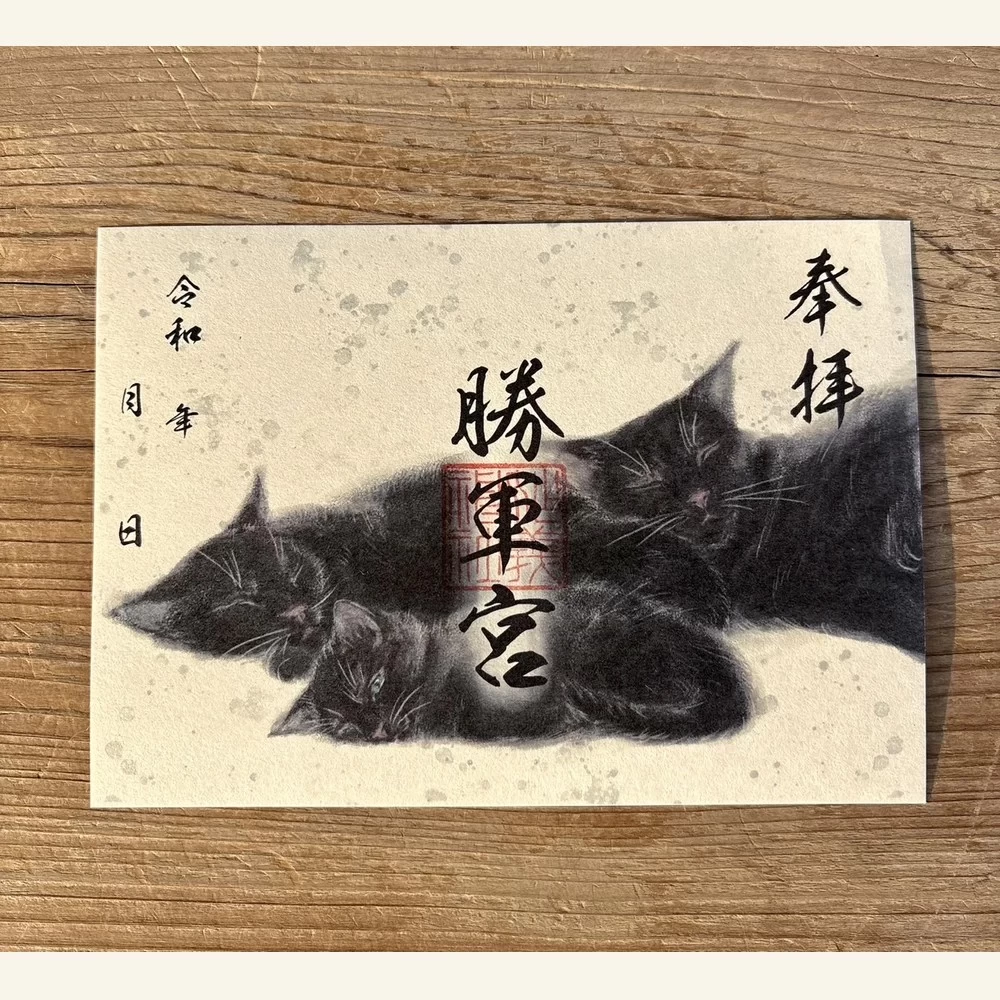 奉拝
勝軍宮
令和 年
月 日